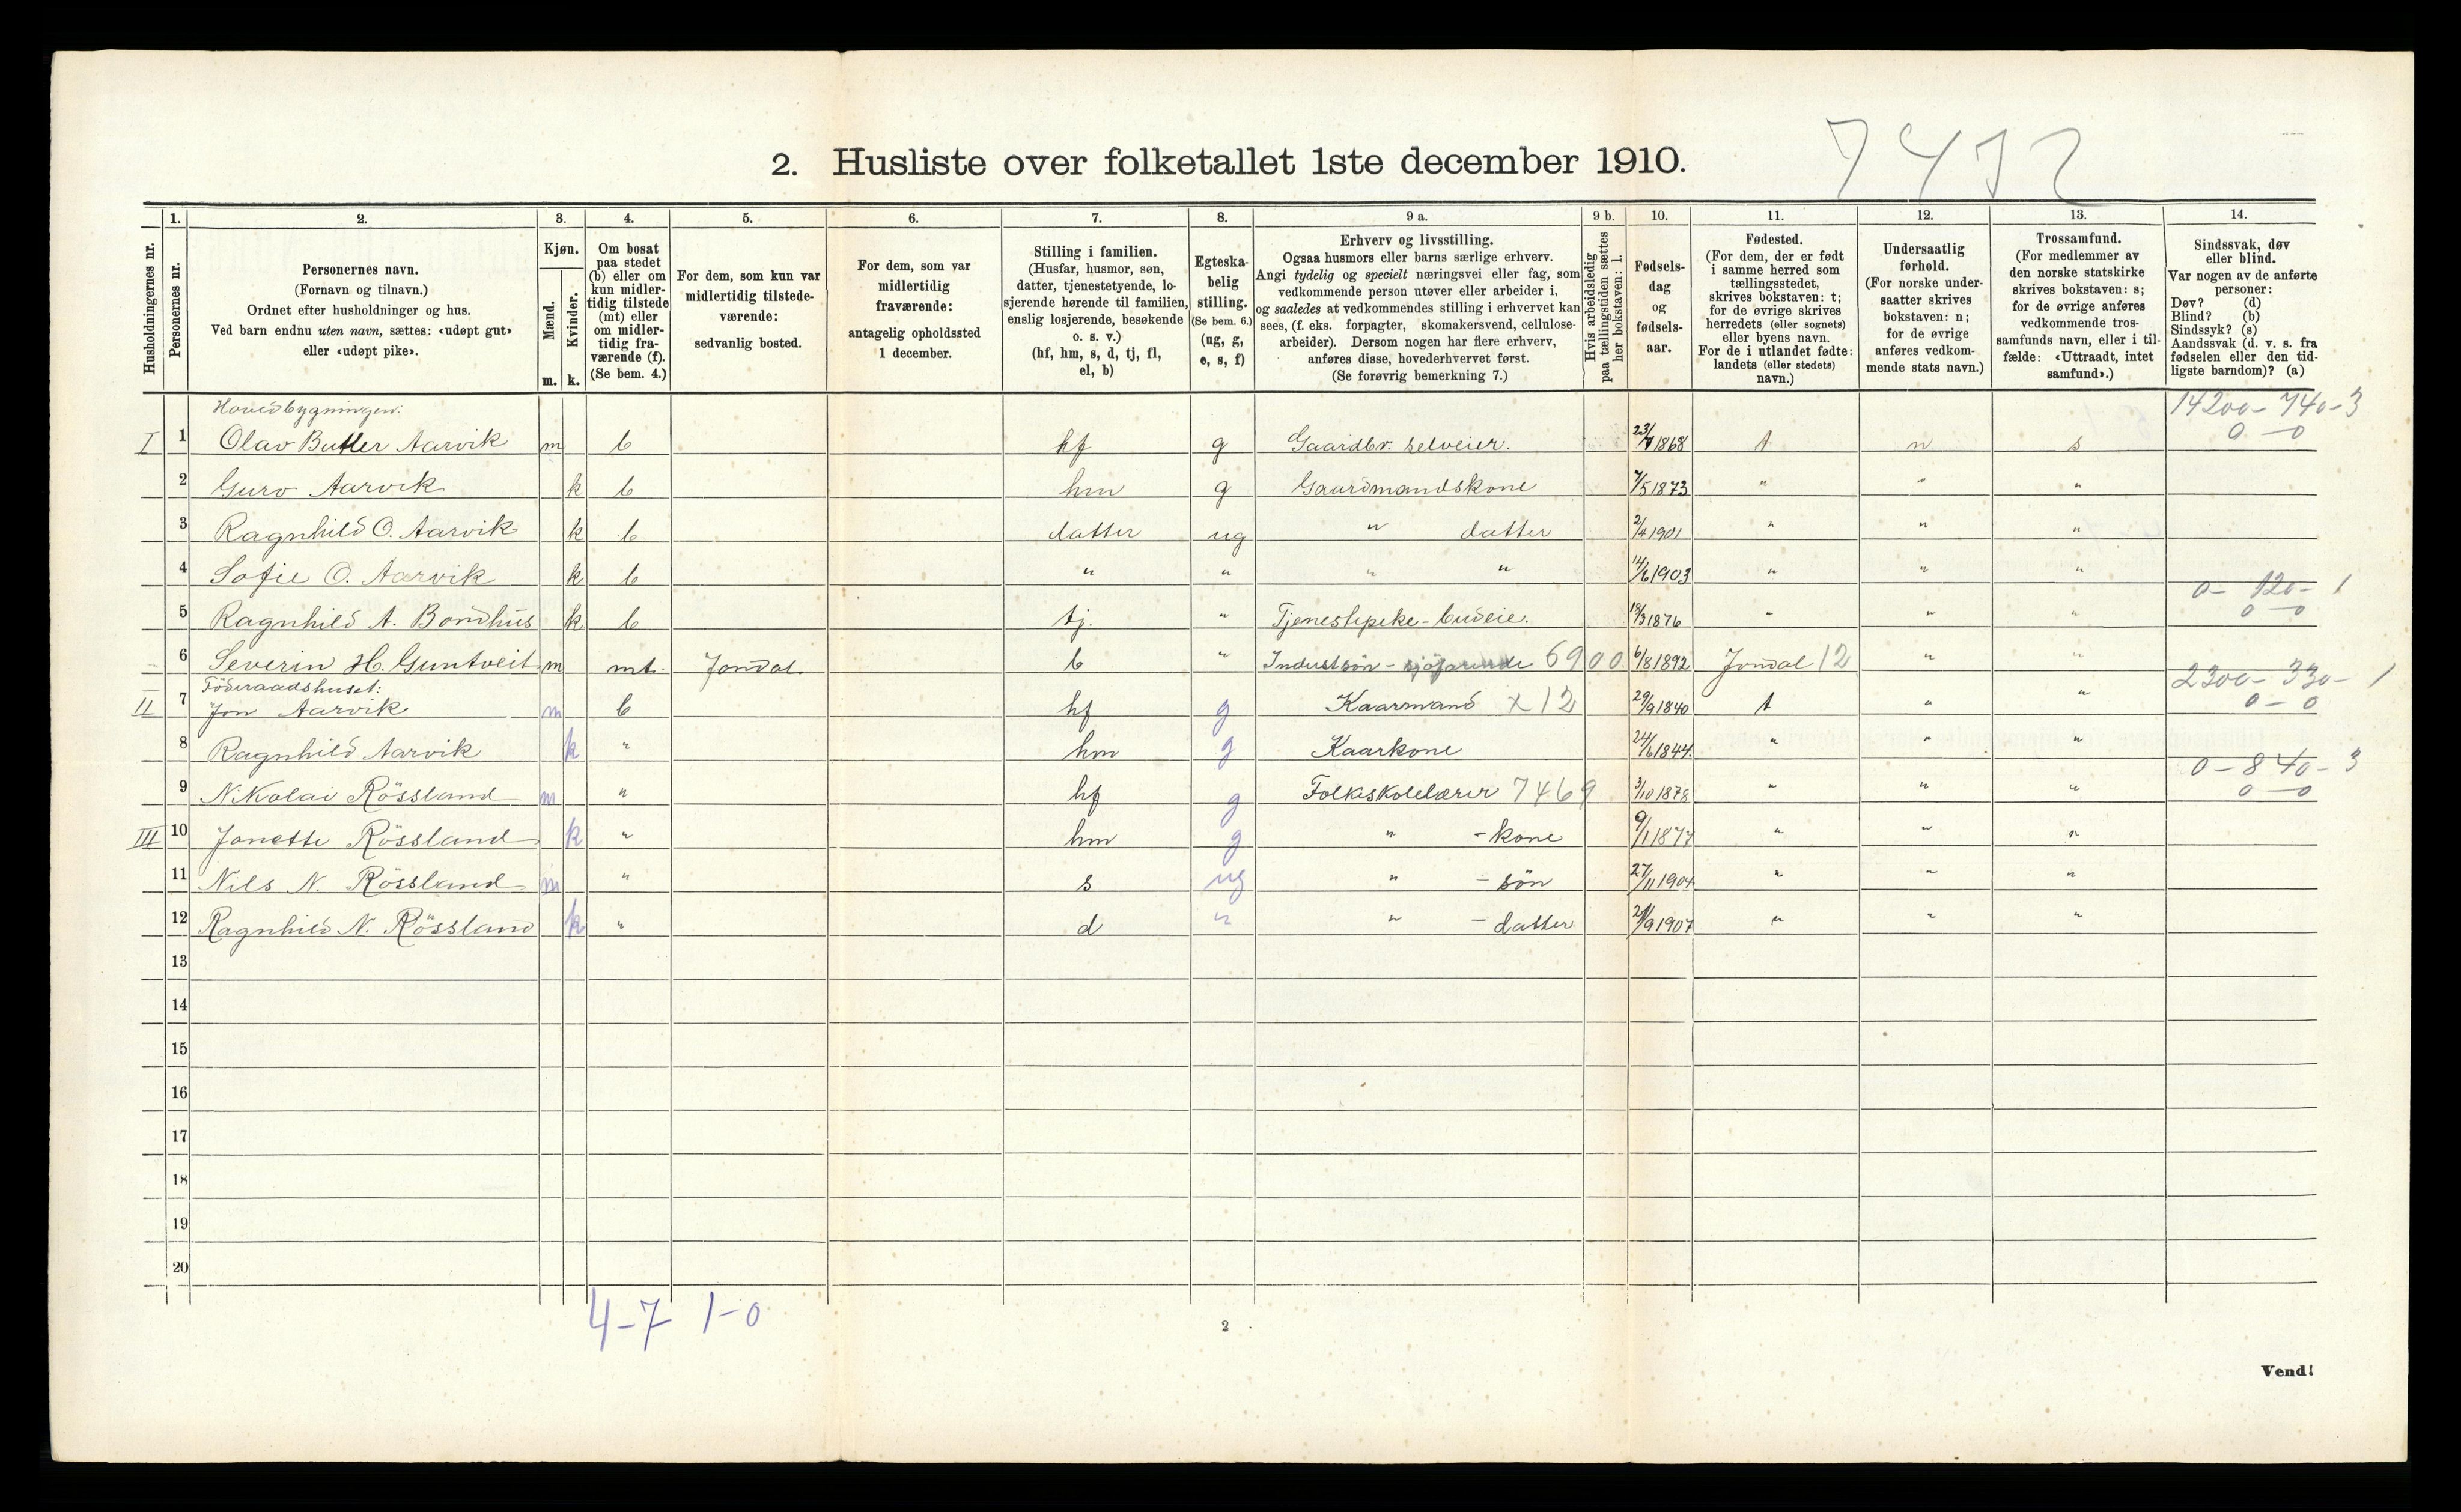 7472
2. Husliste over folketallet 1ste december 1910.
1. 2. 3. 4. 5. 6. 7. 8. 9 a. 9 b. 10. 11. 12. 13. 14.
Husholdningernes nr.
Personernes nr.
Personernes navn.
(Fornavn og tilnavn.)
Ordnet efter husholdninger og hus.
Ved barn endnu uten navn, sættes: «udøpt gut»
eller «udøpt pike».
Kjøn.
Mænd.
Kvinder.
m. k.
Om bosat
paa stedet
(b) eller om
kun midler-
tidig tilstede
(mt) eller
om midler-
tidig fra-
værende (f).
(Se bem. 4.)
For dem, som kun var
midlertidig tilstede-
værende:
sedvanlig bosted.
For dem, som var
midlertidig
fraværende:
antagelig opholdssted
1 december.
Stilling i familien.
(Husfar, husmor, søn,
datter, tjenestetyende, lo-
sjerende hørende til familien,
enslig losjerende, besøkende
o. s. v.)
(hf, hm, s, d, tj, fl,
el, b)
Egteska-
belig
stilling.
(Se bem. 6.)
(ug, g,
e, s, f)
Erhverv og livsstilling.
Ogsaa husmors eller barns særlige erhverv.
Angi tydelig og specielt næringsvei eller fag, som
vedkommende person utøver eller arbeider i,
og saaledes at vedkommendes stilling i erhvervet kan
sees, (f. eks. forpagter, skomakersvend, cellulose-
arbeider). Dersom nogen har flere erhverv,
anføres disse, hovederhvervet først.
(Se forøvrig bemerkning 7.)
Hvis arbeidsledig
paa tællingstiden sættes
her bokstaven: l.
Fødsels-
dag
og
fødsels-
aar.
Fødested.
(For dem, der er født
i samme herred som
tællingsstedet,
skrives bokstaven: t;
for de øvrige skrives
herredets (eller sognets)
eller byens navn.
For de i utlandet fødte:
landets (eller stedets)
navn.)
Undersaatlig
forhold.
(For norske under-
saatter skrives
bokstaven: n;
for de øvrige
anføres vedkom-
mende stats navn.)
Trossamfund.
(For medlemmer av
den norske statskirke
skrives bokstaven: s;
for de øvrige anføres
vedkommende tros-
samfunds navn, eller i til-
fælde: «Uttraadt, intet
samfund».)
Sindssvak, døv
eller blind.
Var nogen av de anførte
personer:
Døv? (d)
Blind? (b)
Sindssyk? (s)
Aandssvak (d. v. s. fra
fødselen eller den tid-
ligste barndom)? (a)
Hovedbygningen: 14200 - 740 - 3
I 1 Olav Butler Aarvik m b hf g Gaardbr. selveier. 23/7 1868 t n s 0 - 0
2 Guro Aarvik k b hm g Gaardmandskone 7/5 1873 " " "
3 Ragnhild O. Aarvik k b datter ug " datter 2/4 1901 " " "
4 Sofie O. Aarvik k b " " " " 14/6 1903 " " "
0 - 120 - 1
5 Ragnhild A. Bondhus k b tj. " Tjenestepike - budeie. 18/3 1876 " " " 0 - 0
6 Severin H. Guntveit m mt. Jondal. b " - sjøfarende 6900 6/8 1892 Jondal 12 " "
Föderaadshuset: 2300 - 330 - 1
II 7 Jon Aarvik m b hf g Kaarmand x 12 29/9 1840 t " " 0 - 0
8 Ragnhild Aarvik k " hm g Kaarkone 24/6 1844. " " "
0 - 840 - 3
9 Nikolai Rössland m " hf g Folkeskolelærer 7469 3/10 1878 " " " 0 - 0
III 10 Jonette Rössland k " hm g " - kone 9/1 1877 " " "
11 Nils N. Rössland m " s ug " - sön 27/11 1904 " " "
12 Ragnhild N. Rössland k " d " " - datter 21/9 1907 " " "
13
14
15
16
17
18
19
20
4 - 7 1 - 0
2
Vend!